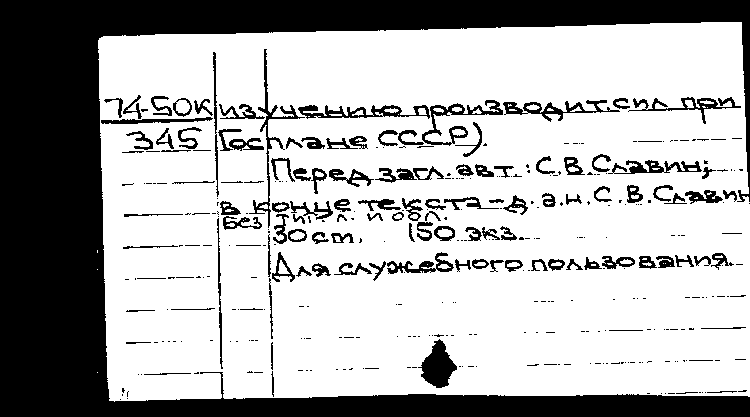 74-50к изучению производит. сил при
345 Госплане СССР).
Перед загл. авт.: С.В. Славин;
в конце текста - д.э.н. С.В. Славин
Без тит. л. и обл.
30 ст. 150 экз.
Для служебного пользования.